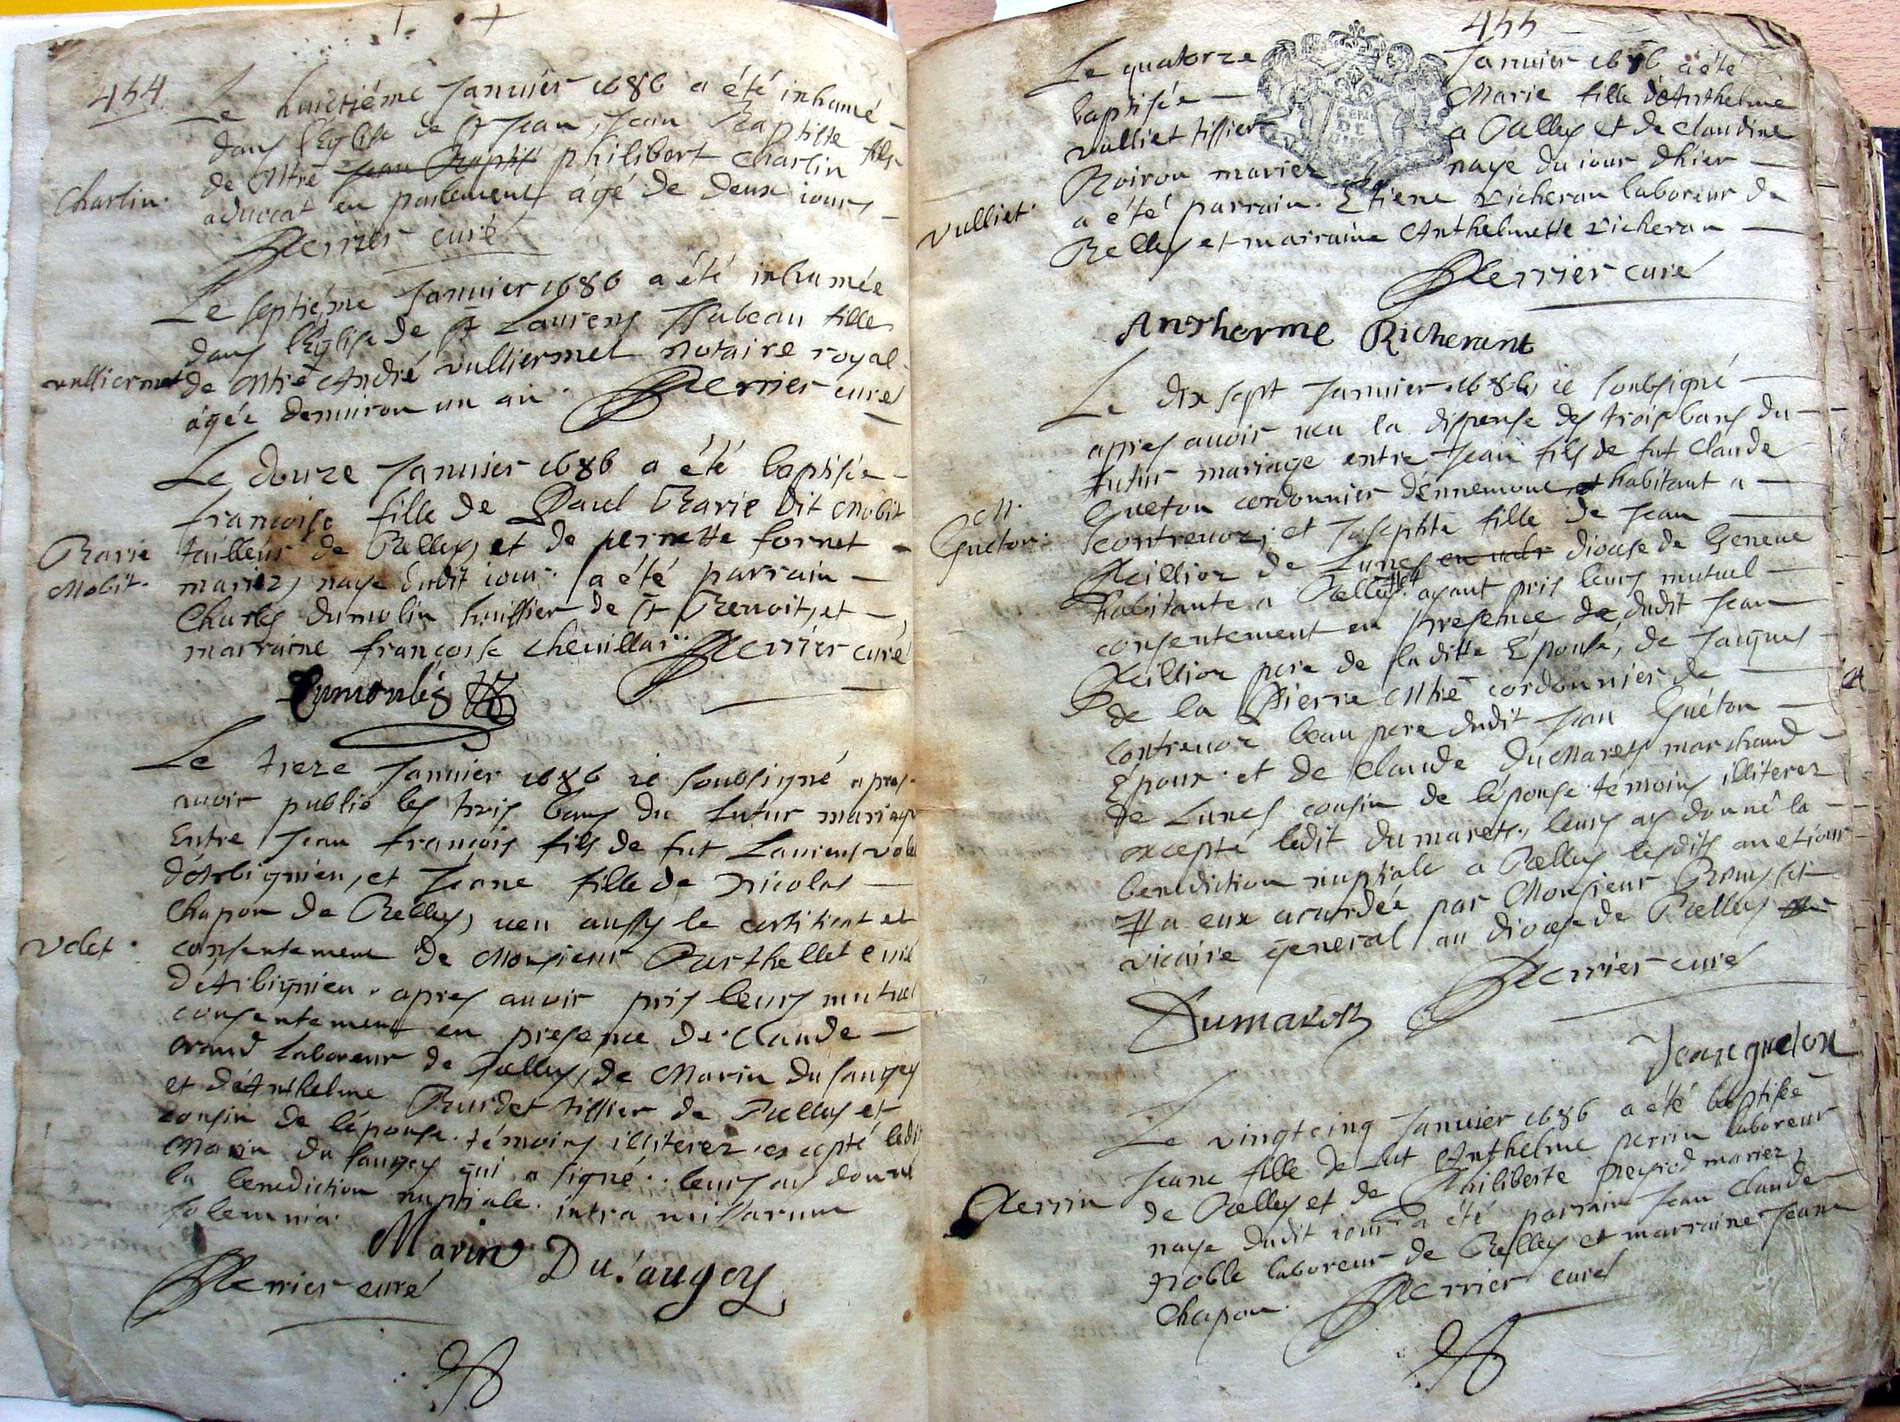 454
Le huictiéme Januier 1686 a été inhumé
dans l'Eglise de St Jean, Jean Baptiste fils
de Mtre Jean Baptist philibert Charlin
aduocat en parlement agé de deux iours
Charlin.
Perrier curé
Le septiéme Januier 1686 a été inhumée
dans l'Eglise de St Laurens Isabeau fille
de Mtre André vulliermet notaire royal
vulliermet
agée denuiron un an. Perrier curé
Le douze Januier 1686 a été baptisée
francoise fille de Paul Marie dit Mobit
tailleur de Belley, et de pernette fornet
Marie
Mobit.
mariez, naye dudit iour. a été parrain
Charles dumolin huissier de St Benoit, et
marraine françoise cheuillar Perrier curé
Dumoulin
Le treze Januier 1686 ie soubsigné apres
auoir publié les trois bans du futur mariage
Entre Jean françois fils de fut Laurens volet
d'Arbignieu, et Jeane fille de Nicolas
Chapon de Belley, ueu aussy le certificat et
volet.
consentement de Monsieur Barthellet curé
d'Arbignieu. apres auoir pris leurs mutuel
consentement en presence de Claude
orand laboreur de Belley, de Marin du saugey
et d'Anthelme Burdet tissier de Belley et
cousin de l'épouse. témoins illiterez excepté ledit
Marin du saugey qui a signé. leurs ay donné
la benediction nuptiale. intra missarum
solemnia.
Marin Du saugey
Perrier curé
455
Le quatorze Januier 1686 a été
baptisée Marie fille d'Anthelme
vulliet tissier a Belley et de claudine
Boiron mariez naye du iour dhier
a été parrain. Etiene Richeran laboreur de
vulliet.
Belley et marraine Anthelmette Richeran
Perrier curé
Antherme Richerant
Le dix sept Januier 1686 ie soubsigné
apres auoir ueu la dispense des trois bans du
futur mariage entre Jean fils de fut Claude
Gueton cordonnier dennemoue et habitant a
Gueton.
contreuoz, et Josephte fille de Jean
Peillioz de Lunes diocese de Geneue
habitante a Belley. ayant pris leurs mutuel
consentement en presence de dudit Jean
Peillioz pere de ladite Epouse, de Jacques
de la Pierre Mtre cordonnier de
Contreuoz beau pere dudit Jean Guéton
Epoux. et de Claude Dumarest marchand
de Lunes cousin de l'épouse. temoins illiterez
excepté ledit dumarets. leurs ay donné la
benediction nuptiale a Belley lesdits an et iour
# a eux acordée par Monsieur
vicaire general au diocese de Belley
Perrier curé
Dumarest
Jean gueton
Le vingtcinq Januier 1686 a été baptisée
Jeane fille de fut Anthelme perrin laboreur
de Belley et de Philiberte preysod mariez,
Perrin
naye dudit iour a été parrain Jean Claude
Noble laboreur de Belley et marraine Jeane
Chapon. Perrier curé